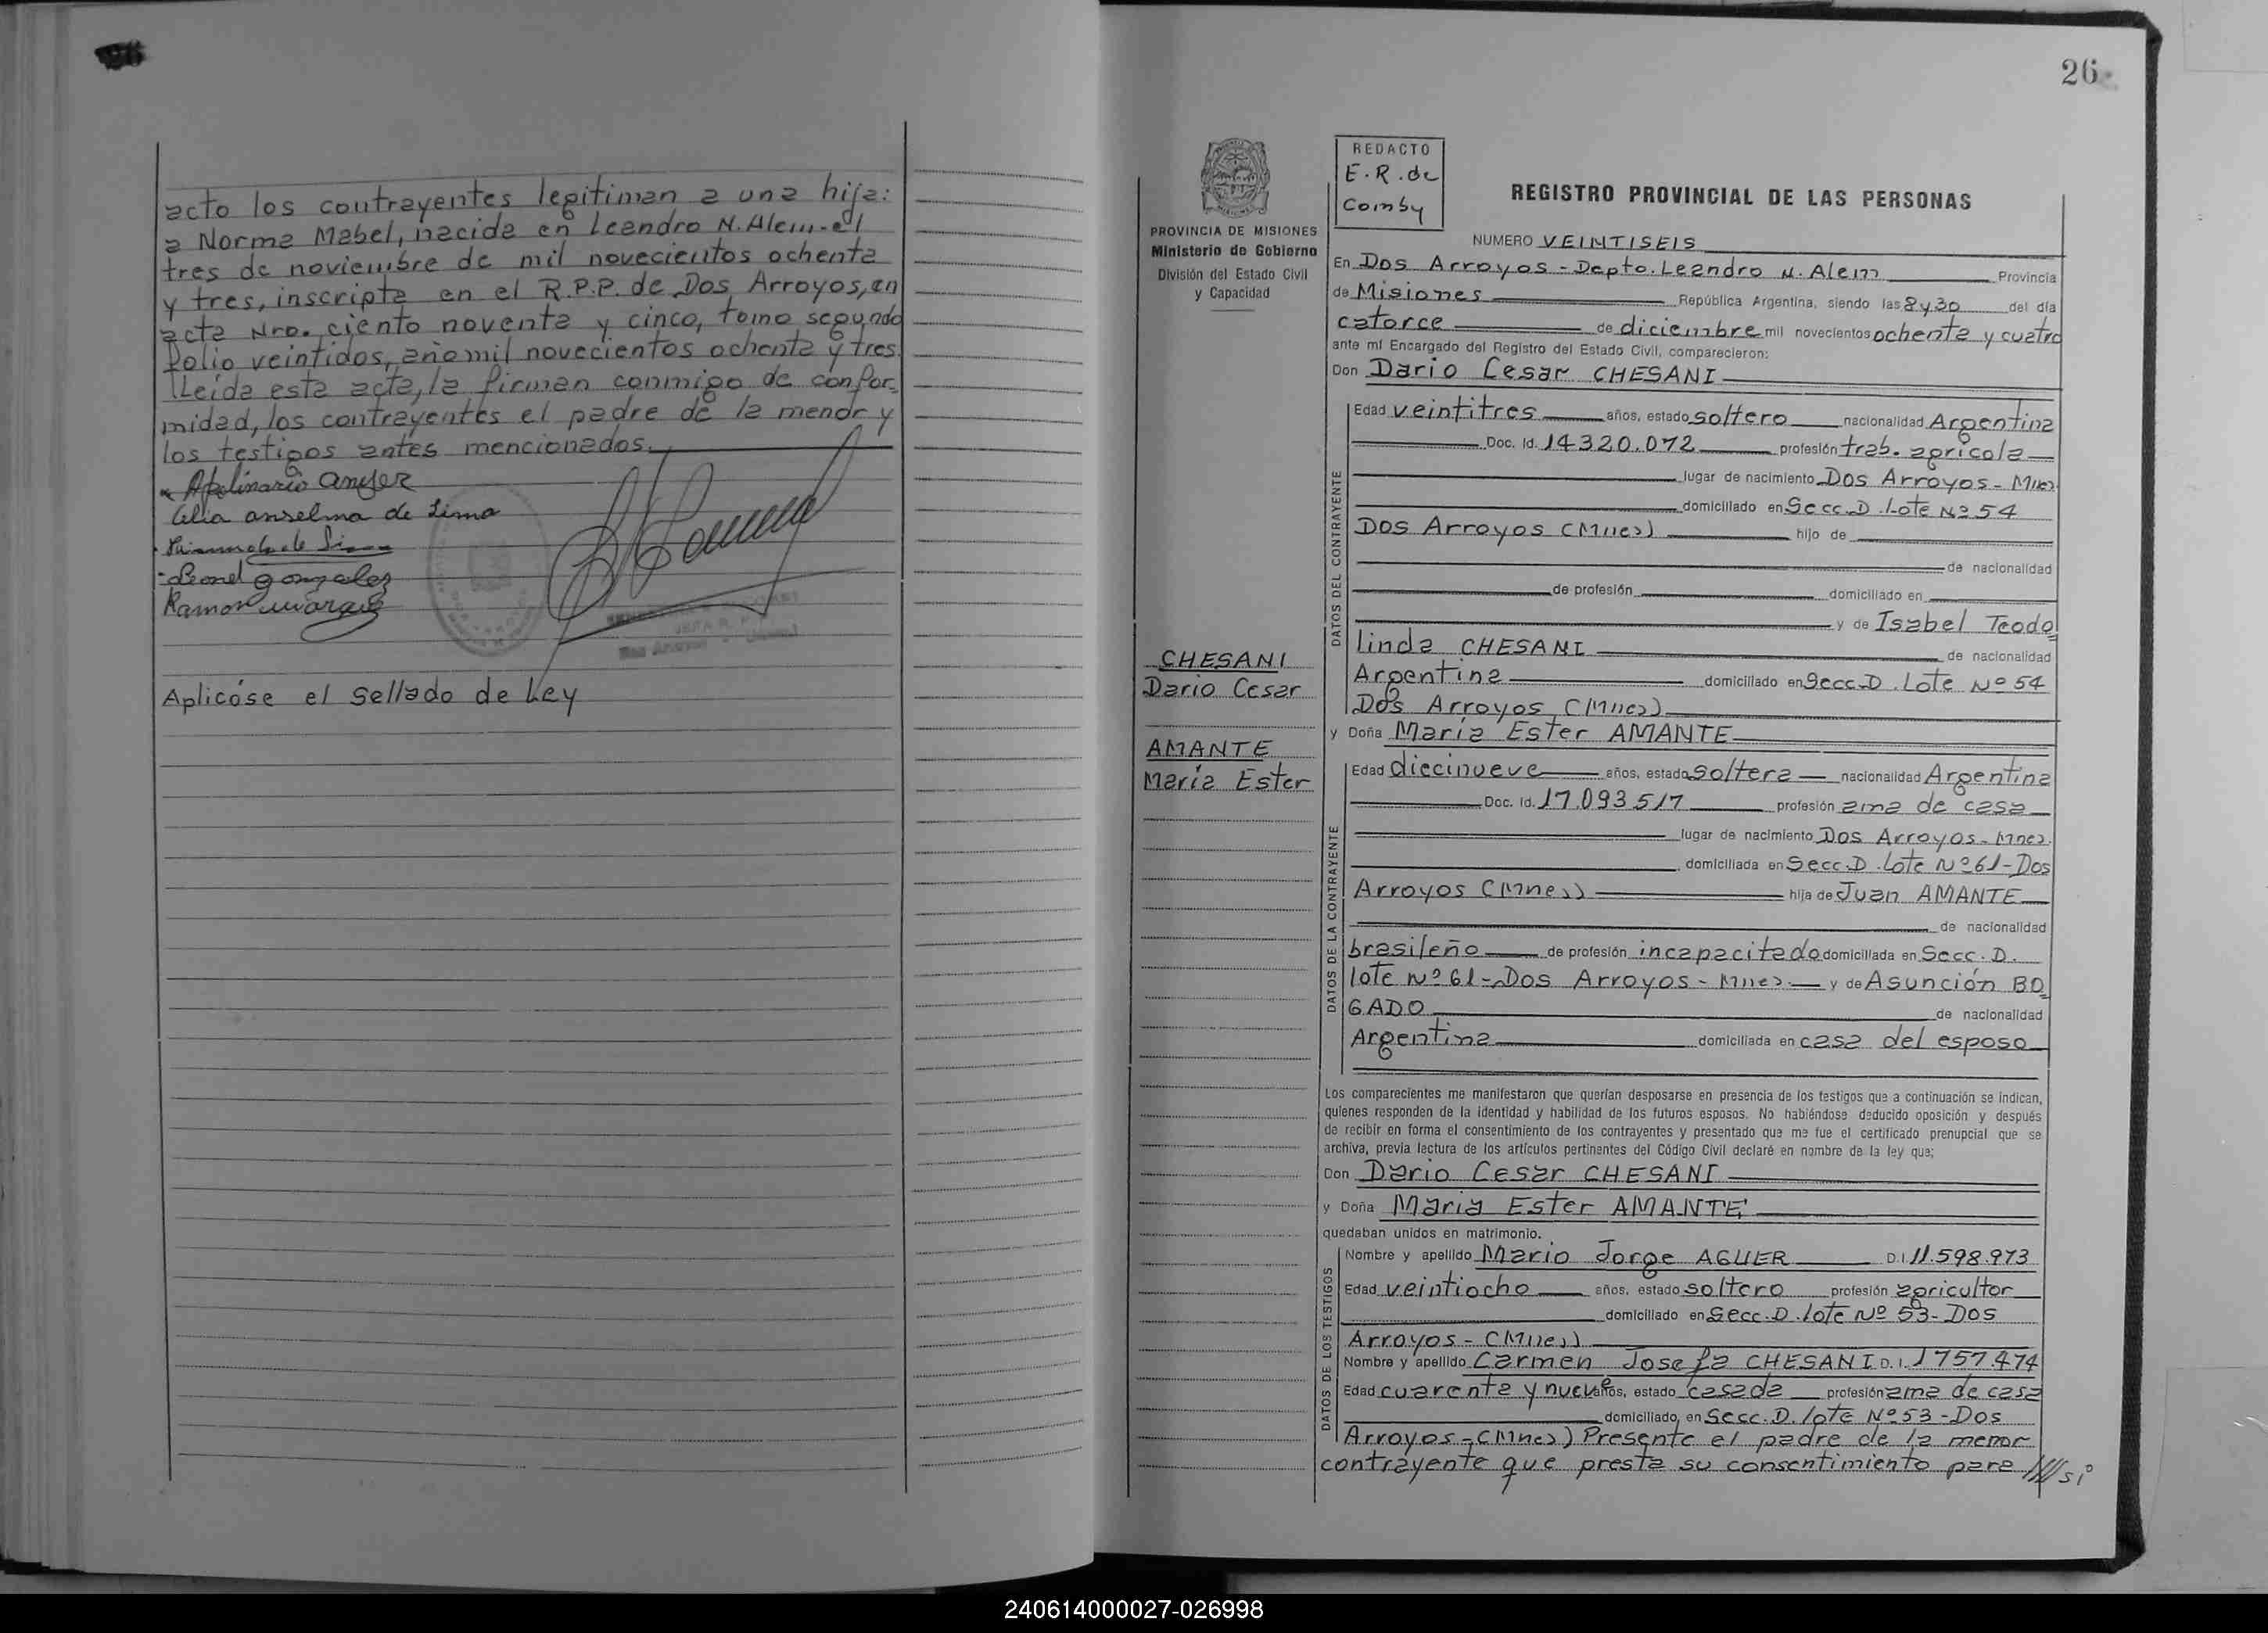 acto los contrayentes legitiman a una hija:
a Norma Mabel, nacida en Leandro N. Alem - el
tres de noviembre de mil novecientos ochenta
y tres, inscripta en el R.P.P. de Dos Arroyos, en
acta Nro. ciento noventa y cinco, tomo segundo
folio veintidos, año mil novecientos ochenta y tres.
Leída esta acta, la firman conmigo de confor-
midad, los contrayentes el padre de la menor y
los testigos antes mencionados.
Apolinario
Celia anselma de Lima
de Lima
Leonel gonzalez
Ramon
Aplicóse el sellado de Ley
26
PROVINCIA DE MISIONES
Ministerio de Gobierno
División del Estado Civil
y Capacidad
CHESANI
Dario Cesar
AMANTE
María Ester
REDACTO
E.R. de
Coimby
REGISTRO PROVINCIAL DE LAS PERSONAS
NUMERO VEINTISEIS
En Dos Arroyos - Depto. Leandro N. Alem Provincia
de Misiones República Argentina, siendo las 8 y 30 del día
catorce de diciembre mil novecientos ochenta y cuatro
ante mí Encargado del Registro del Estado Civil, comparecieron:
Don Dario Cesar CHESANI
DATOS DEL CONTRAYENTE
Edad veintitres años, estado soltero nacionalidad Argentina
Doc. Id. 14.320.072 profesión trab. agricola
lugar de nacimiento Dos Arroyos - Mnes.
domiciliado en Secc. D. Lote Nº 54
Dos Arroyos (Mnes) hijo de
de nacionalidad
de profesión domiciliado en
y de Isabel Teodo
linda CHESANI de nacionalidad
Argentina domiciliado en Secc. D. Lote Nº 54
Dos Arroyos (Mnes)
y Doña María Ester AMANTE
DATOS DE LA CONTRAYENTE
Edad diecinueve años, estado soltera nacionalidad Argentina
Doc. Id. 17.093.517 profesión ama de casa
lugar de nacimiento Dos Arroyos - Mnes.
domiciliada en Secc. D. Lote Nº 61 - Dos
Arroyos (Mnes) hija de Juan AMANTE
de nacionalidad
brasileño de profesión incapacitado domiciliada en Secc. D.
lote Nº 61 - Dos Arroyos - Mnes. y de Asunción BO
GADO de nacionalidad
Argentina domiciliada en casa del esposo
Los comparecientes me manifestaron que querían desposarse en presencia de los testigos que a continuación se indican,
quienes responden de la identidad y habilidad de los futuros esposos. No habiéndose deducido oposición y después
de recibir en forma el consentimiento de los contrayentes y presentado que me fue el certificado prenupcial que se
archiva, previa lectura de los artículos pertinentes del Código Civil declaré en nombre de la ley que;
Don Dario Cesar CHESANI
y Doña Maria Ester AMANTE
quedaban unidos en matrimonio.
DATOS DE LOS TESTIGOS
Nombre y apellido Mario Jorge AGUER D.I. 11.598.973
Edad veintiocho años, estado soltero profesión agricultor
domiciliado en Secc. D. lote Nº 53 - Dos
Arroyos - (Mnes)
Nombre y apellido Carmen Josefa CHESANI D.I. 1757.474
Edad cuarenta y nueve años, estado casada profesión ama de casa
domiciliado en Secc. D. lote Nº 53 - Dos
Arroyos - (Mnes) Presente el padre de la menor
contrayente que presta su consentimiento para //// si
240614000027-026998